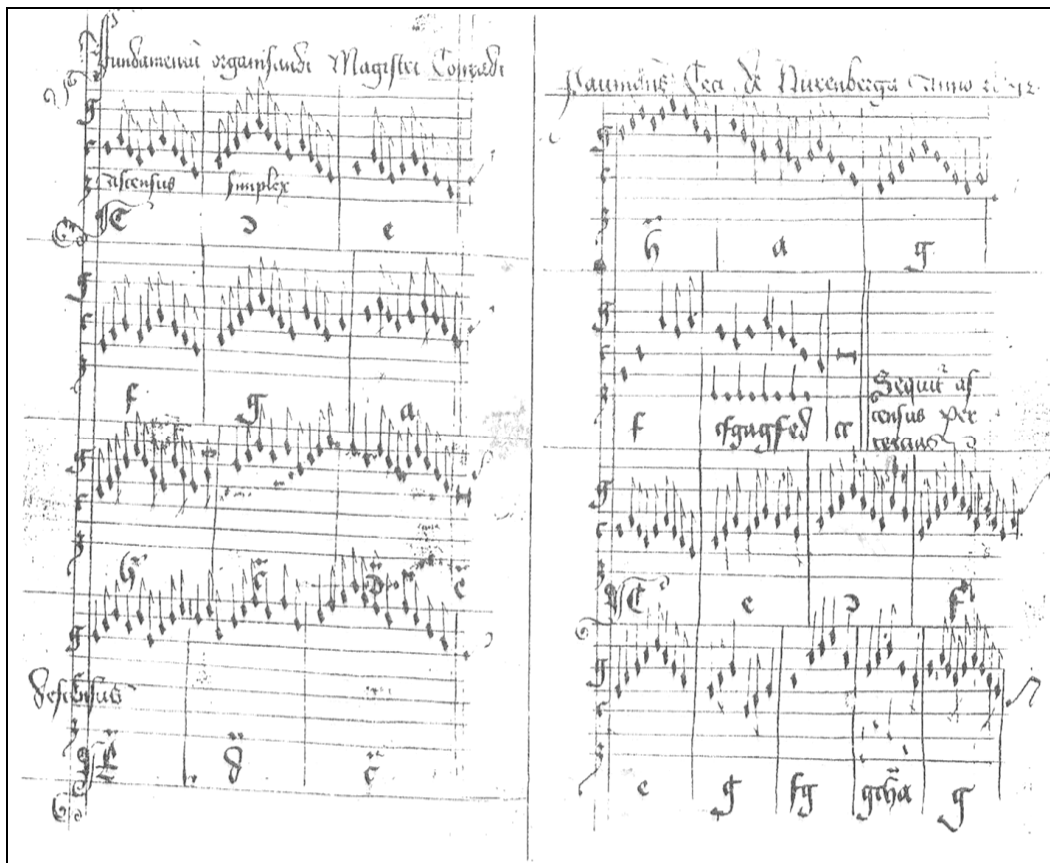 Fundamentū organisandi Magistri Conradi
ascensus simplex
C d e
f g a
h c̈ d̈ ë
descensus
ë d̈ c̈
Paumanns Ceci de Nurenberga Anno
ḧ a g
f efgagfed cc
Sequit² as
census per
tercias
C e d f
e g fg gcha g